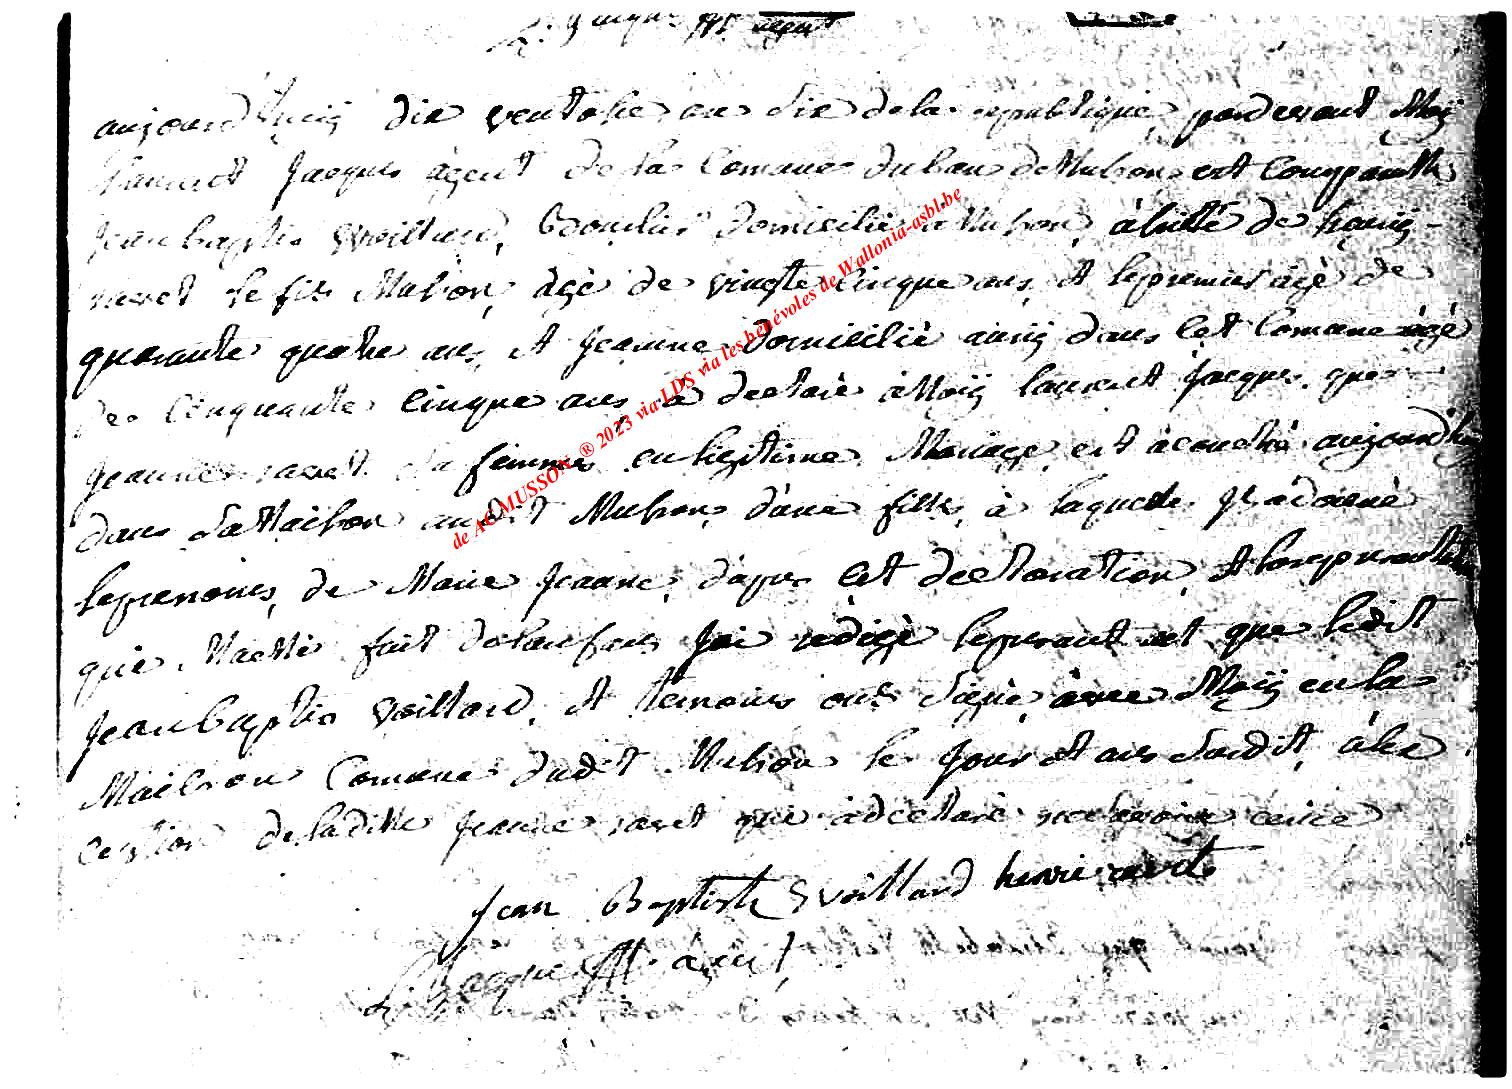 L. Jacque At. agent
aujourd'huij dix ventose an six de la republique pardevant Moij
Laurent Jacques agent de la Comune du ban de Musson est Comparutte
jean baptis Woillard, domicilié a Musson, de henrij
ravet le fils Musson, agè de vingte Cinque ans, et le premier agè de
quarante quatre ans, et Jeanne domiciliè aussij dans cet Comune agè
de Cinquante Cinque ans, a declarè à Moij laurent Jacques, que
jeanne ravet sa femme en legitime Mariage, est acouchè aujourd'huij
dans sa Maison audit Musson, d'une fille, à laquelle il a donnè
le prenoms, de Marie Jeanne, d'apres cet declaration, et la representation
que Matte fait de l'enfans J'ai redigè le present act que ledit
jean baptis Woillard, et temoins ont signè avec Moij en la
Maison Comune dudit Musson le Jour et ans susdit, à la
ception de laditte jeanne ravet que a declarè
Jean Baptiste Woillard henri ravet
L. Jacque At. agent
de AC MUSSON ® 2023 via LDS via les bénévoles de Wallonia-asbl.be